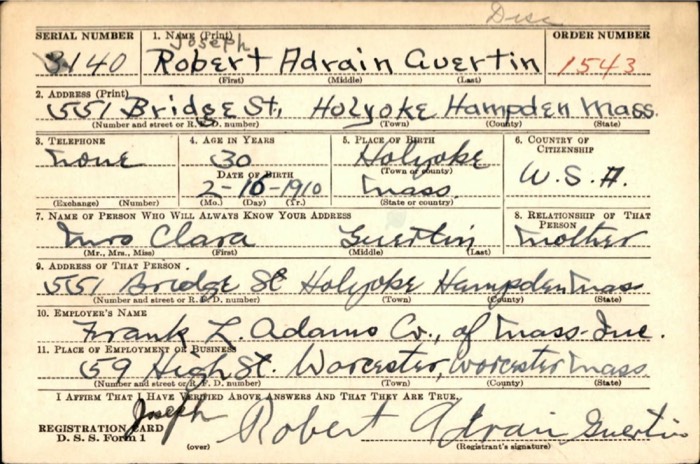 Disc
SERIAL NUMBER 1. NAME (Print) ORDER NUMBER
Joseph
3140 Robert Adrain Guertin 1543
(First) (Middle) (Last)
2. ADDRESS (Print)
551 Bridge St. Holyoke Hampden Mass.
(Number and street or R. F. D. number) (Town) (County) (State)
3. TELEPHONE 4. AGE IN YEARS 5. PLACE OF BIRTH 6. COUNTRY OF CITIZENSHIP
None 30 Holyoke
(Town or county)
DATE OF BIRTH U.S.A.
2-10-1910 Mass.
(Exchange) (Number) (Mo.) (Day) (Yr.) (State or country)
7. NAME OF PERSON WHO WILL ALWAYS KNOW YOUR ADDRESS 8. RELATIONSHIP OF THAT PERSON
Mrs Clara Guertin Mother
(Mr., Mrs., Miss) (First) (Middle) (Last)
9. ADDRESS OF THAT PERSON
551 Bridge St Holyoke Hampden Mass
(Number and street or R. F. D. number) (Town) (County) (State)
10. EMPLOYER'S NAME
Frank L. Adams Co., of Mass. Inc.
11. PLACE OF EMPLOYMENT OR BUSINESS
59 High St. Worcester, Worcester Mass
(Number and street or R. F. D. number) (Town) (County) (State)
I AFFIRM THAT I HAVE VERIFIED ABOVE ANSWERS AND THAT THEY ARE TRUE.
Joseph Robert Adrain Guertin
REGISTRATION CARD
D. S. S. Form 1 (over) (Registrant's signature)